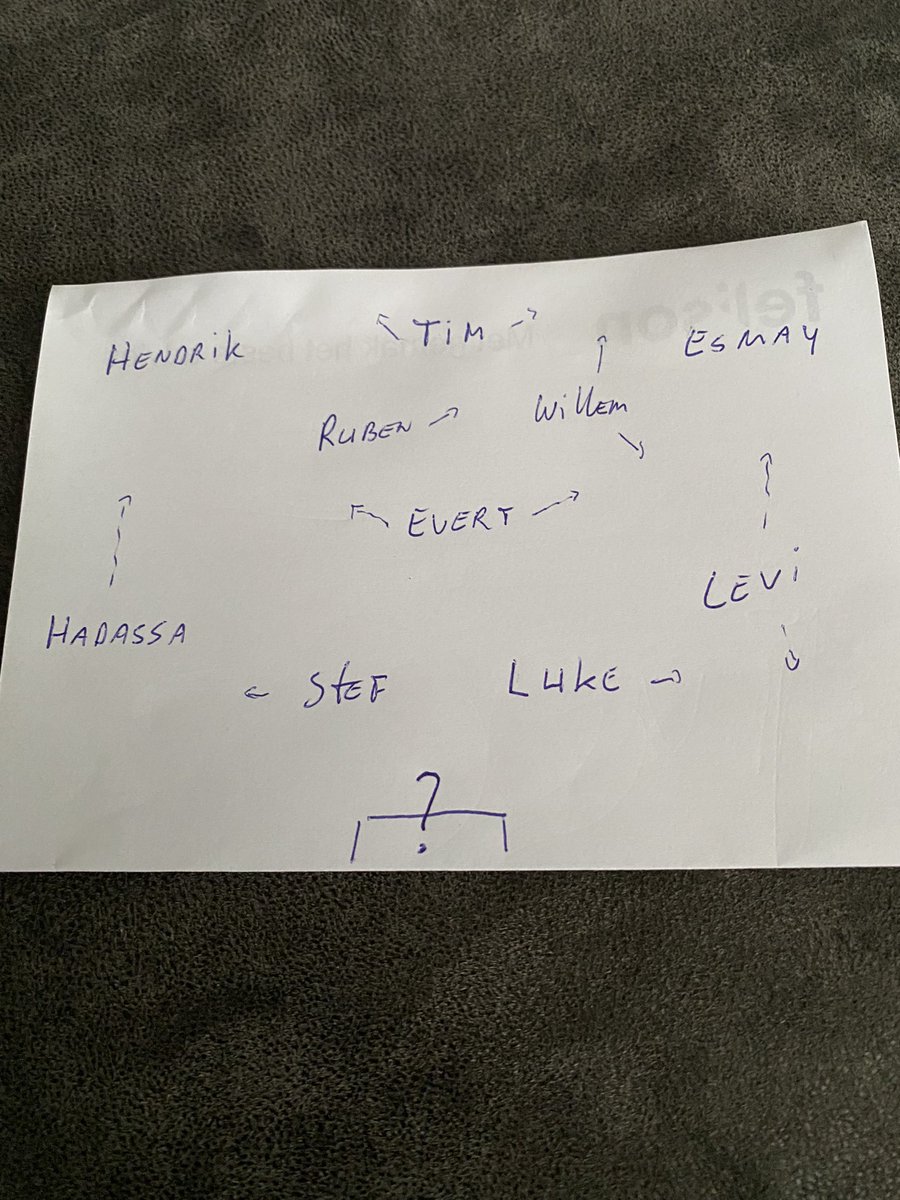 HENDRIK TIM ESMAY
RUBEN Willem
EVERT
HADASSA LEVI
STEF LUKE
?
felison